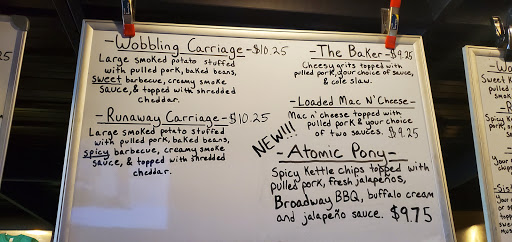 -Wobbling Carriage-$10.25
Large smoked potato stuffed
with pulled pork, baked beans,
sweet barbecue, creamy smoke
sauce, & topped with shredded
cheddar.
-Runaway Carriage-$10.25
Large smoked potato stuffed
with pulled pork, baked beans,
spicy barbecue, creamy smoke
sauce, & topped with shredded
cheddar.
-The Baker-$9.25
Cheesy grits topped with
pulled pork, your choice of sauce,
& cole slaw.
-Loaded Mac N' Cheese-
Mac n' cheese topped with
pulled pork & your choice
of two sauces. $9.25
NEW!!!
-Atomic Pony-
Spicy Kettle chips topped with
pulled pork, fresh jalapeños,
Broadway BBQ, buffalo cream
and jalapeño sauce. $9.75